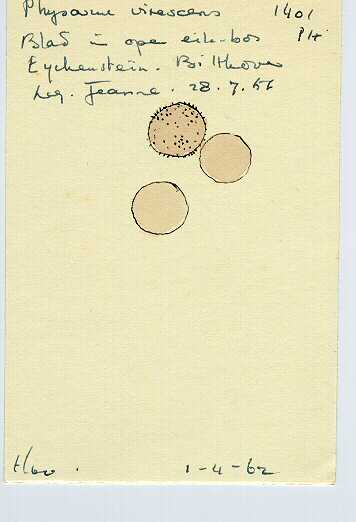 Physarum virescens 1401
Blad in open eik-bos PH
Eyckenstein. Bilthoven
Leg. Jeanne. 28.7.56
1-4-62